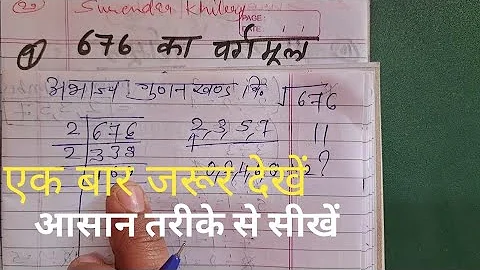 Surendar Khilery
PAGE:
DATE:
676 का वर्गमूल
अभाज्य गुणनखण्ड वि.
√676
2 | 676
2,3,5,7
2 | 338
एक बार जरूर देखें
आसान तरीके से सीखें